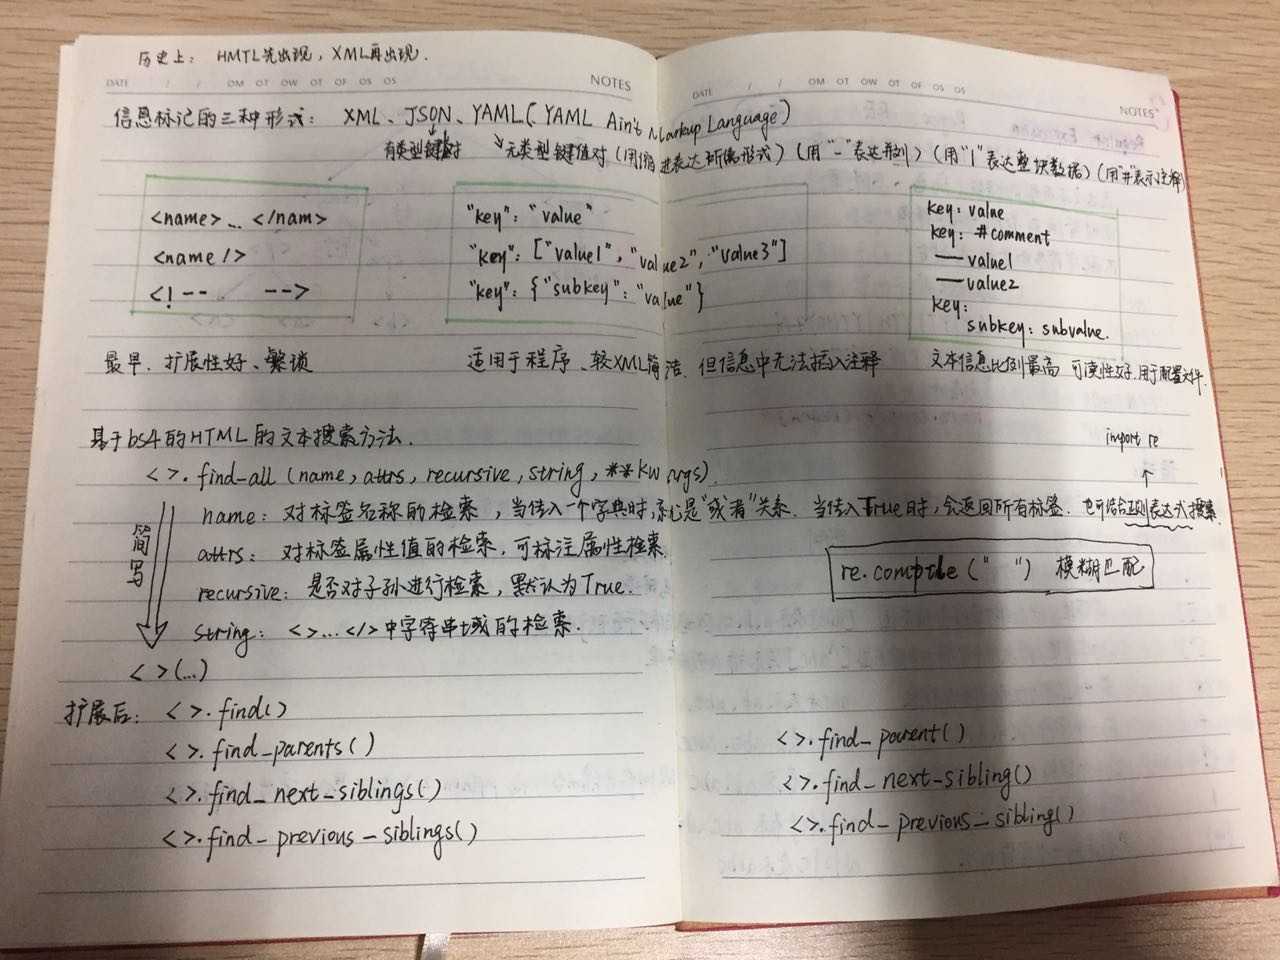 历史上: HMTL先出现, XML再出现.
DATE / / OM OT OW OT OF OS OS NOTES
DATE / / OM OT OW OT OF OS OS NOTES
信息标记的三种形式: XML、JSON、YAML(YAML Ain't Markup Language)
有类型键对 无类型键值对(用缩进表达所属形式)(用"-"表达并列)(用"|"表达整块数据)(用"#"表示注释)
<name>… </nam>
<name />
<!-- -->
"key": "value"
"key": ["value1", "value2", "value3"]
"key": {"subkey": "value"}
key: value
key: #comment
—value1
—value2
key:
subkey: subvalue.
最早. 扩展性好、繁琐
适用于程序、较XML简洁. 但信息中无法插入注释
文本信息比例最高 可读性好.用于配置文件.
基于bs4的HTML的文本搜索方法.
<>.find-all (name, attrs, recursive, string, **kwargs)
import re
name: 对标签名称的检索, 当传入一个字典时, 是"或者"关系. 当传入True时, 会返回所有标签. 也可结合正则表达式搜索.
简写
attrs: 对标签属性值的检索, 可标注属性检索.
re.compile (" ") 模糊匹配
recursive: 是否对子孙进行检索, 默认为True.
string: <>…</>中字符串域的检索.
<>(…)
扩展后: <>.find()
<>.find_parents()
<>.find_parent()
<>.find_next-siblings()
<>.find_next-sibling()
<>.find_previous-siblings()
<>.find_previous-sibling()